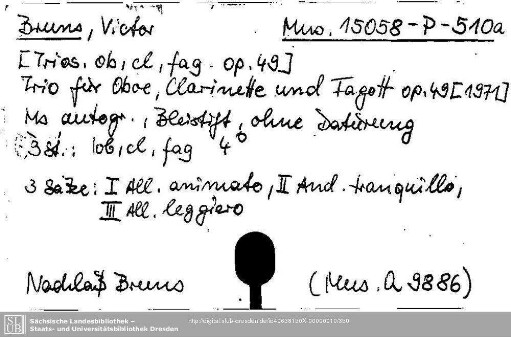 Bruns, Victor Mus. 15058-P-510a
[Trios. ob, cl, fag. op. 49]
Trio für Oboe, Clarinette und Fagott op. 49 [1971]
Ms autogr., Bleistift, ohne Datierung
3 St.: ob, cl, fag 4°
3 Sätze: I All. animato, II And. tranquillo,
III All. leggiero
Nachlaß Bruns (Mus. A 9886)
SLUB
Sächsische Landesbibliothek –
Staats- und Universitätsbibliothek Dresden